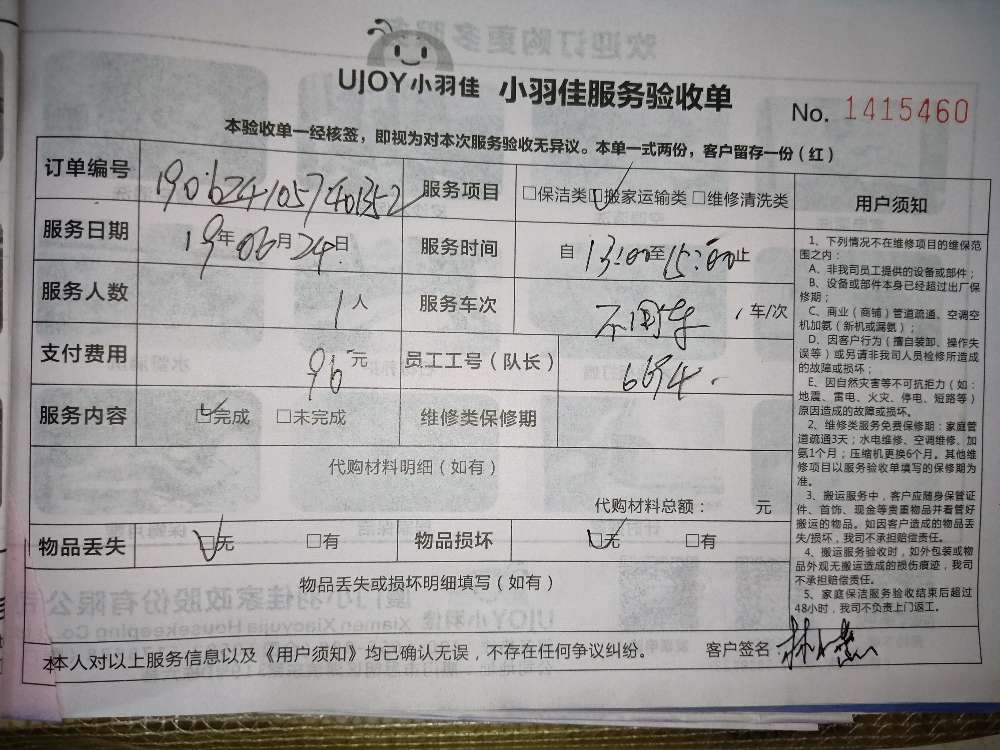 UJOY小羽佳 小羽佳服务验收单
No. 1415460
本验收单一经核签，即视为对本次服务验收无异议。本单一式两份，客户留存一份（红）
订单编号 服务项目 □保洁类 ☑搬家运输类 □维修清洗类
服务日期 19年06月24日 服务时间 自13:00至15:00止
服务人数 1人 服务车次 车/次
支付费用 96元 员工工号（队长）
服务内容 ☑完成 □未完成 维修类保修期
代购材料明细（如有）
代购材料总额： 元
物品丢失 ☑无 □有 物品损坏 ☑无 □有
物品丢失或损坏明细填写（如有）
本人对以上服务信息以及《用户须知》均已确认无误，不存在任何争议纠纷。 客户签名：
用户须知
1、下列情况不在维修项目的维保范
围之内：
A、非我司员工提供的设备或部件；
B、设备或部件本身已经超过出厂保
修期；
C、商业（商铺）管道疏通、空调空
机加氨（新机或漏氨）；
D、因客户行为（擅自装卸、操作失
误等）或另请非我司人员检修所造成
的故障或损坏；
E、因自然灾害等不可抗拒力（如：
地震、雷电、火灾、停电、短路等）
原因造成的故障或损坏。
2、维修类服务免费保修期：家庭管
道疏通3天；水电维修、空调维修、加
氨1个月；压缩机更换6个月。其他维
修项目以服务验收单填写的保修期为
准。
3、搬运服务中，客户应随身保管证
件、首饰、现金等贵重物品并看管好
搬运的物品。如因客户造成的物品丢
失/损坏，我司不承担赔偿责任。
4、搬运服务验收时，如外包装或物
品外观无搬运造成的损伤痕迹，我司
不承担赔偿责任。
5、家庭保洁服务验收结束后超过
48小时，我司不负责上门返工。